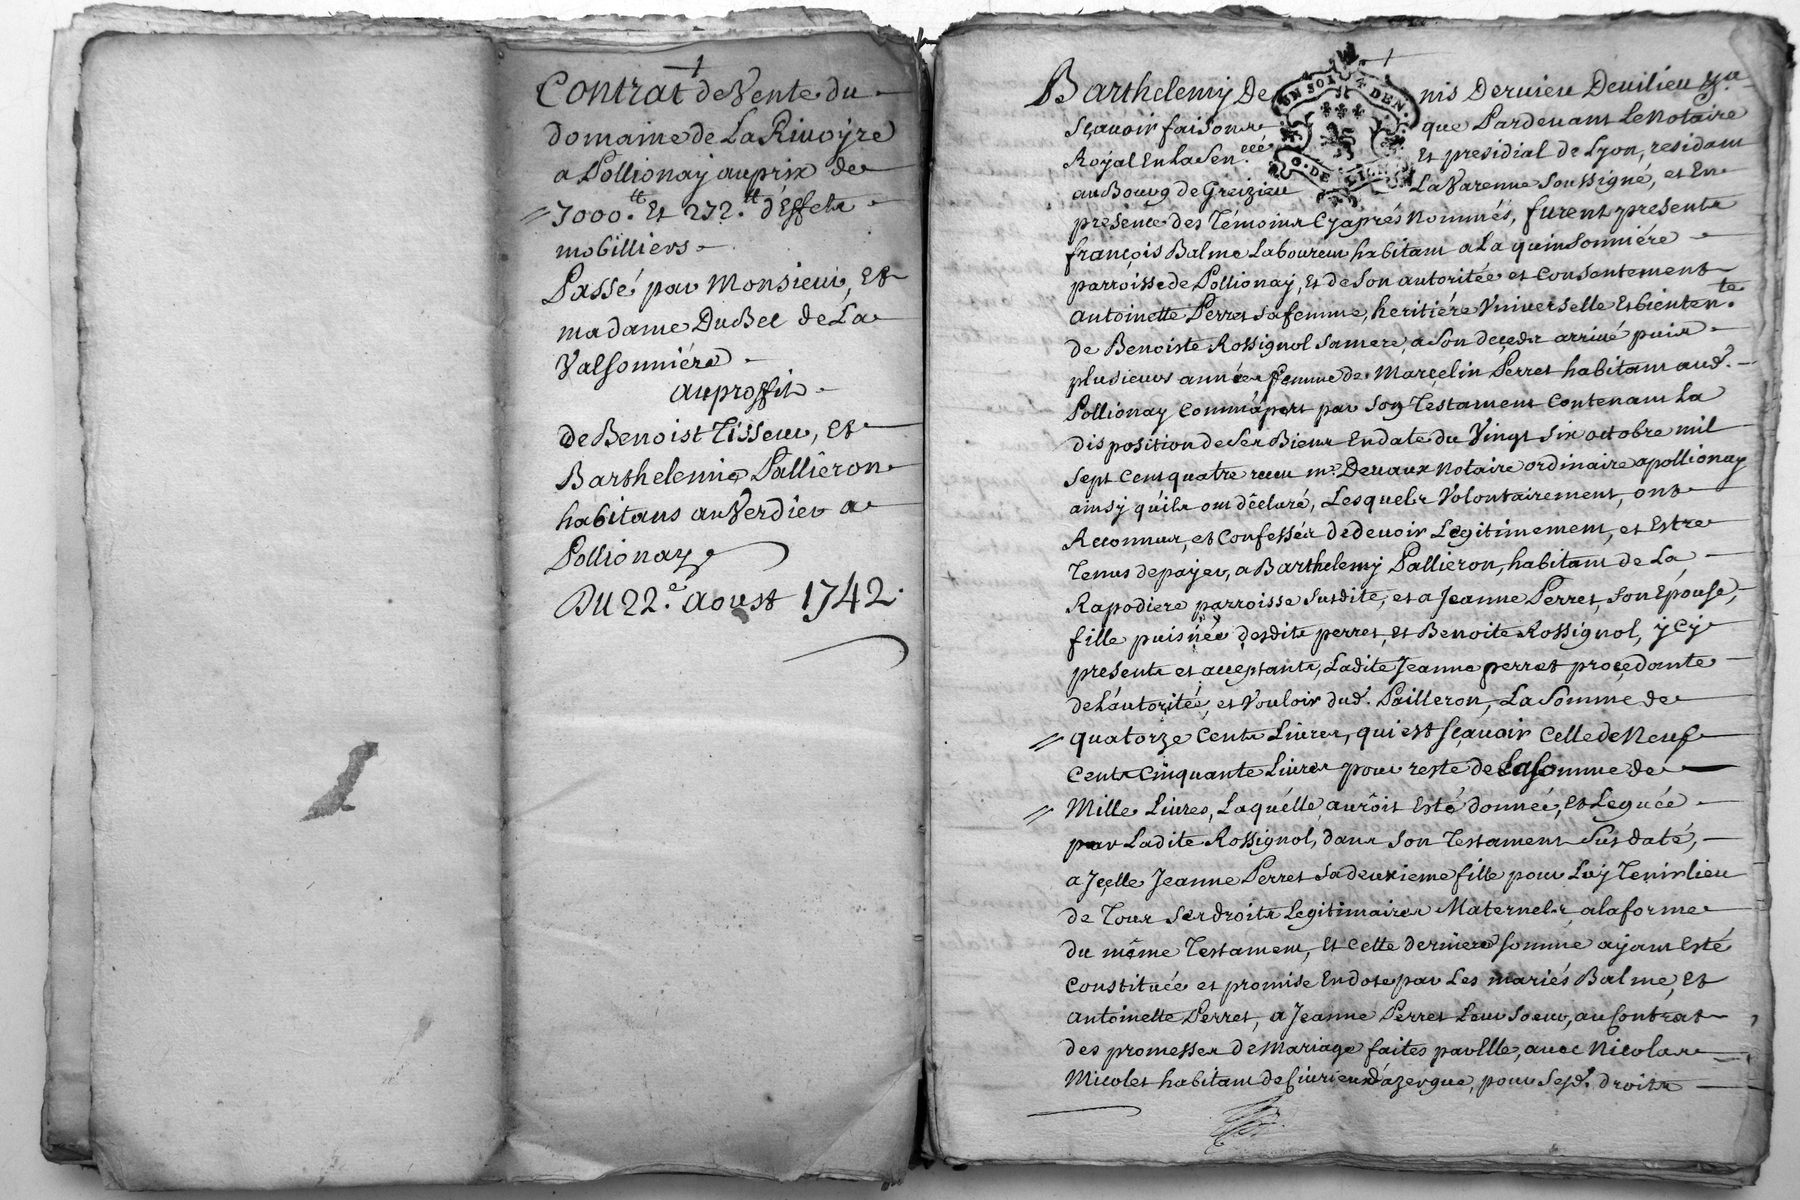 Contrat de Vente du
domaine de La Rivoyre
a Pollionay au prix de
7000.tt Et 272.tt d'Effets
mobilliers
Passé par Monsieur, Et
madame DuBec de La
Valsonniére
au proffit
de Benoist Tisseur, Et
Barthelemie Palliéron
habitans au Verdier a
Pollionay
Du 22.e Aoust 1742.
Barthelemy De nis Dervieu Devilieu
UN SOL DEN.
G. DE LION
Sçavoir faisons que Pardevant Le Notaire
Royal En La Sen.eee Et presidial de Lyon, residant
au Bourg de Greizieu La Varenne Soussigné, et En
presence des Témoins Cyaprés Nommés, furent presents
françois Balme Laboureur habitant a La quinsonniére
parroisse de Pollionay, Et de Son autoritée et Consentement
Antoinette Perret Safemme, heritiére Vniverselle Et bienten.te
de Benoiste Rossignol Samere, a Son deçedz arrivé puis
plusieurs années femme de Marçelin Perret habitant aud.
Pollionay Comm'apert par Son Testament Contenant La
disposition de Ses Biens En date du Vingt Six octobre mil
Sept Cent quatre receu m.e Devaux Notaire ordinaire apollionay
ainsy qu'ils ont dêclaré, Lesquels Volontairement, ont
Reconnus, et Confessés de devoir Legitimement, et Estre
Tenus depayer, a Barthelemy Palliéron, habitant de La
Rapodiere parroisse Susdite, et a Jeanne Perret, Son Epouse,
fille puisnée desdits perret, Et Benoite Rossignol, ycy
presents et acceptants, Ladite Jeanne perret proçedante
de L'autoritée, et Vouloir dud. Pailleron, La Somme de
quatorze Cents Livres, qui est Sçavoir Celle de Neuf
Cents Cinquante Livres pour reste de La Somme de
Mille Livres, Laquélle aurôit Esté donneé, Et Leguée
par Ladite Rossignol, dans Son Testament Sus daté,
a Jçelle Jeanne Perret Sa deuxieme fille pour Luy Tenir lieu
de Tous Ses droits Legitimaires Maternels, a la forme
du même Testament, Et Cette derniere Somme ayant Esté
Constituée et promise En dote par Les mariés Balme, Et
Antoinette Perret, a Jeanne Perret Leur Soeur, au Contrat
des promesses De Mariage faites par Elle, avec Nicolas
Micolet habitant de Civrieux d'azergue, pour Sesd. droits